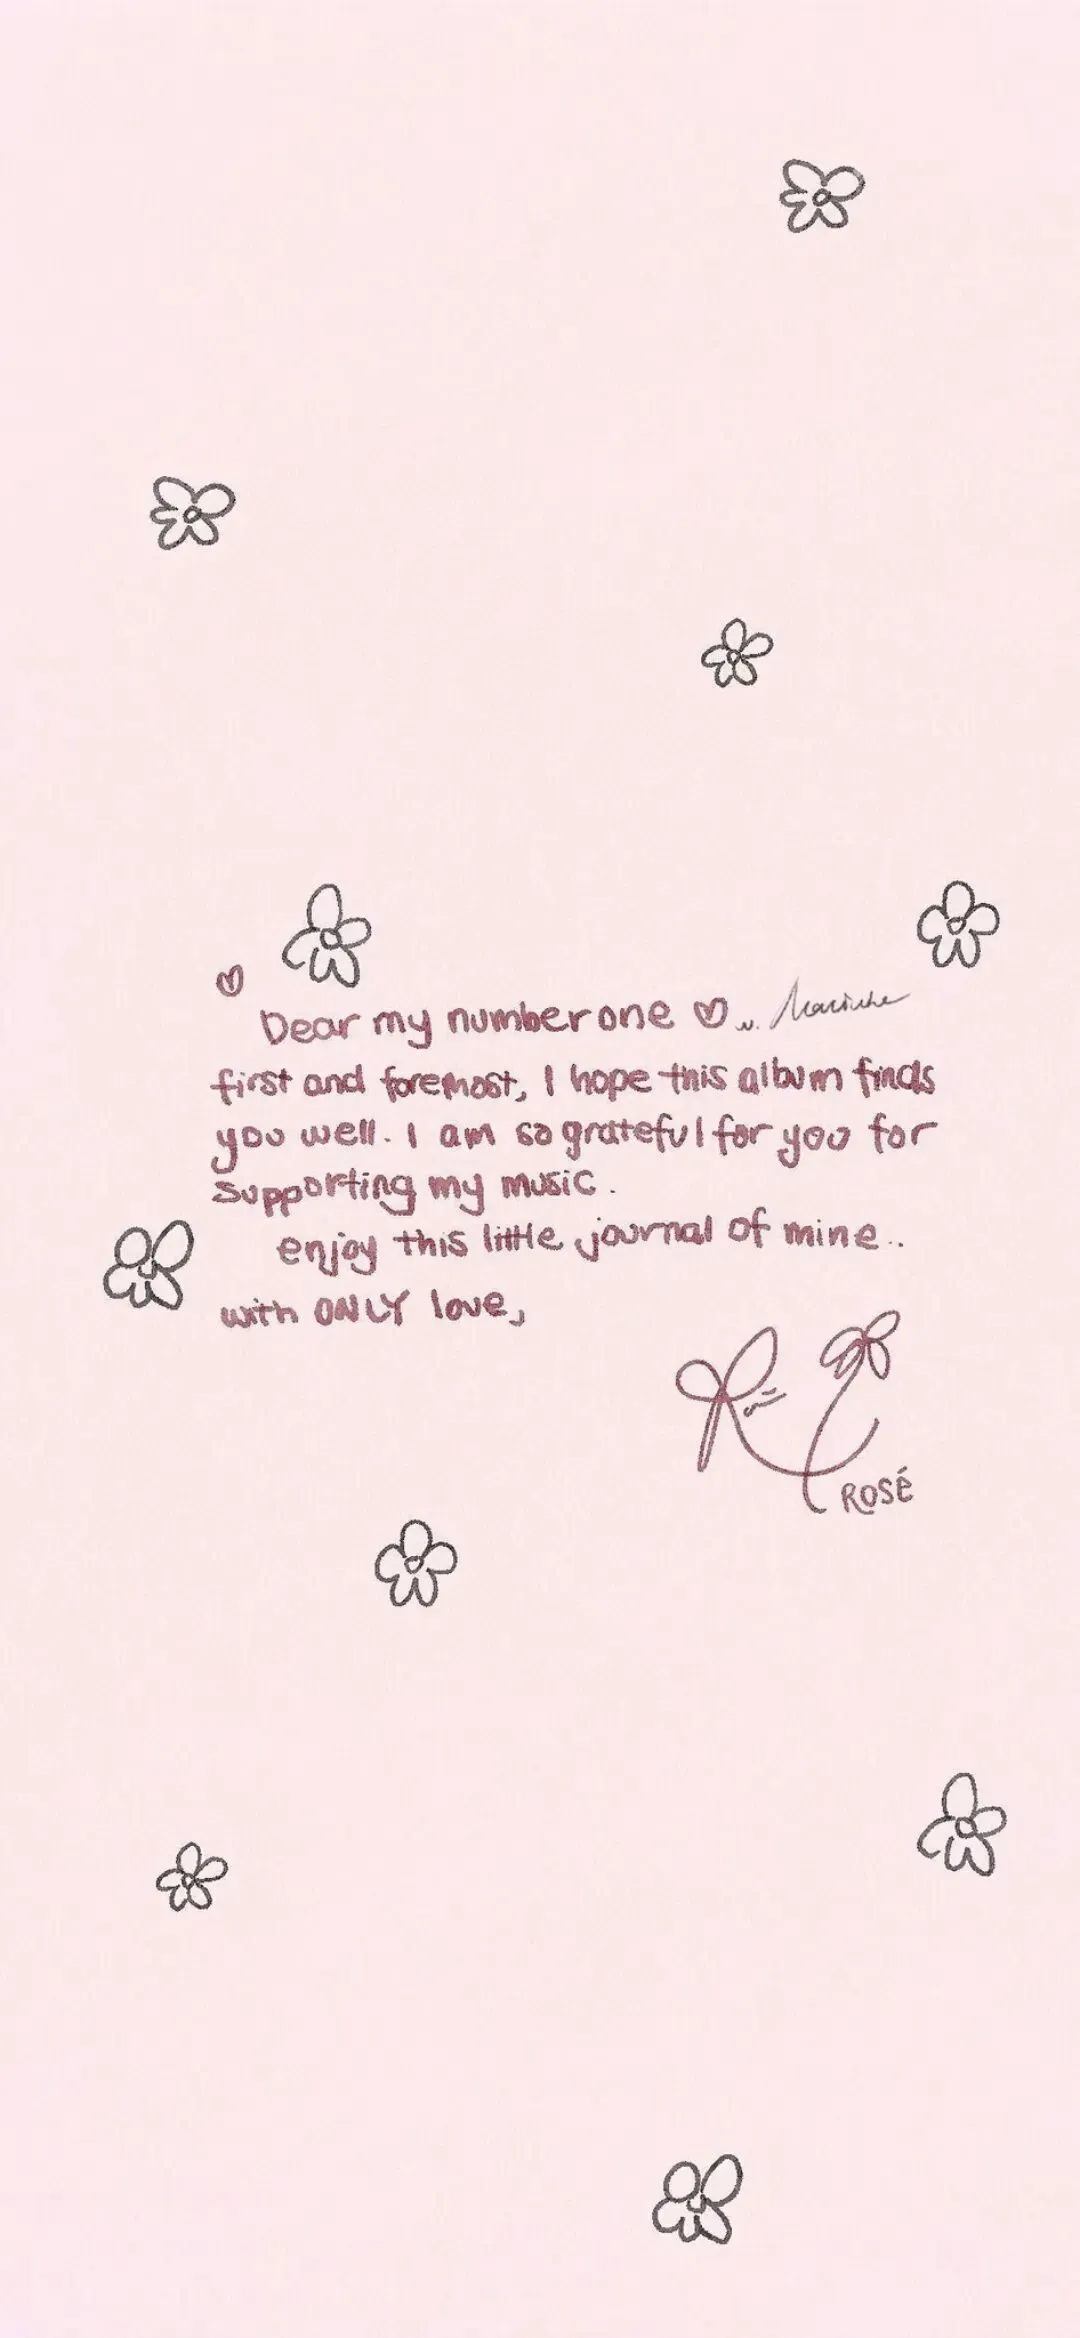 Dear my number one ♡
first and foremost, I hope this album finds
you well. I am so grateful for you for
supporting my music.
enjoy this little journal of mine..
with ONLY love,
ROSÉ